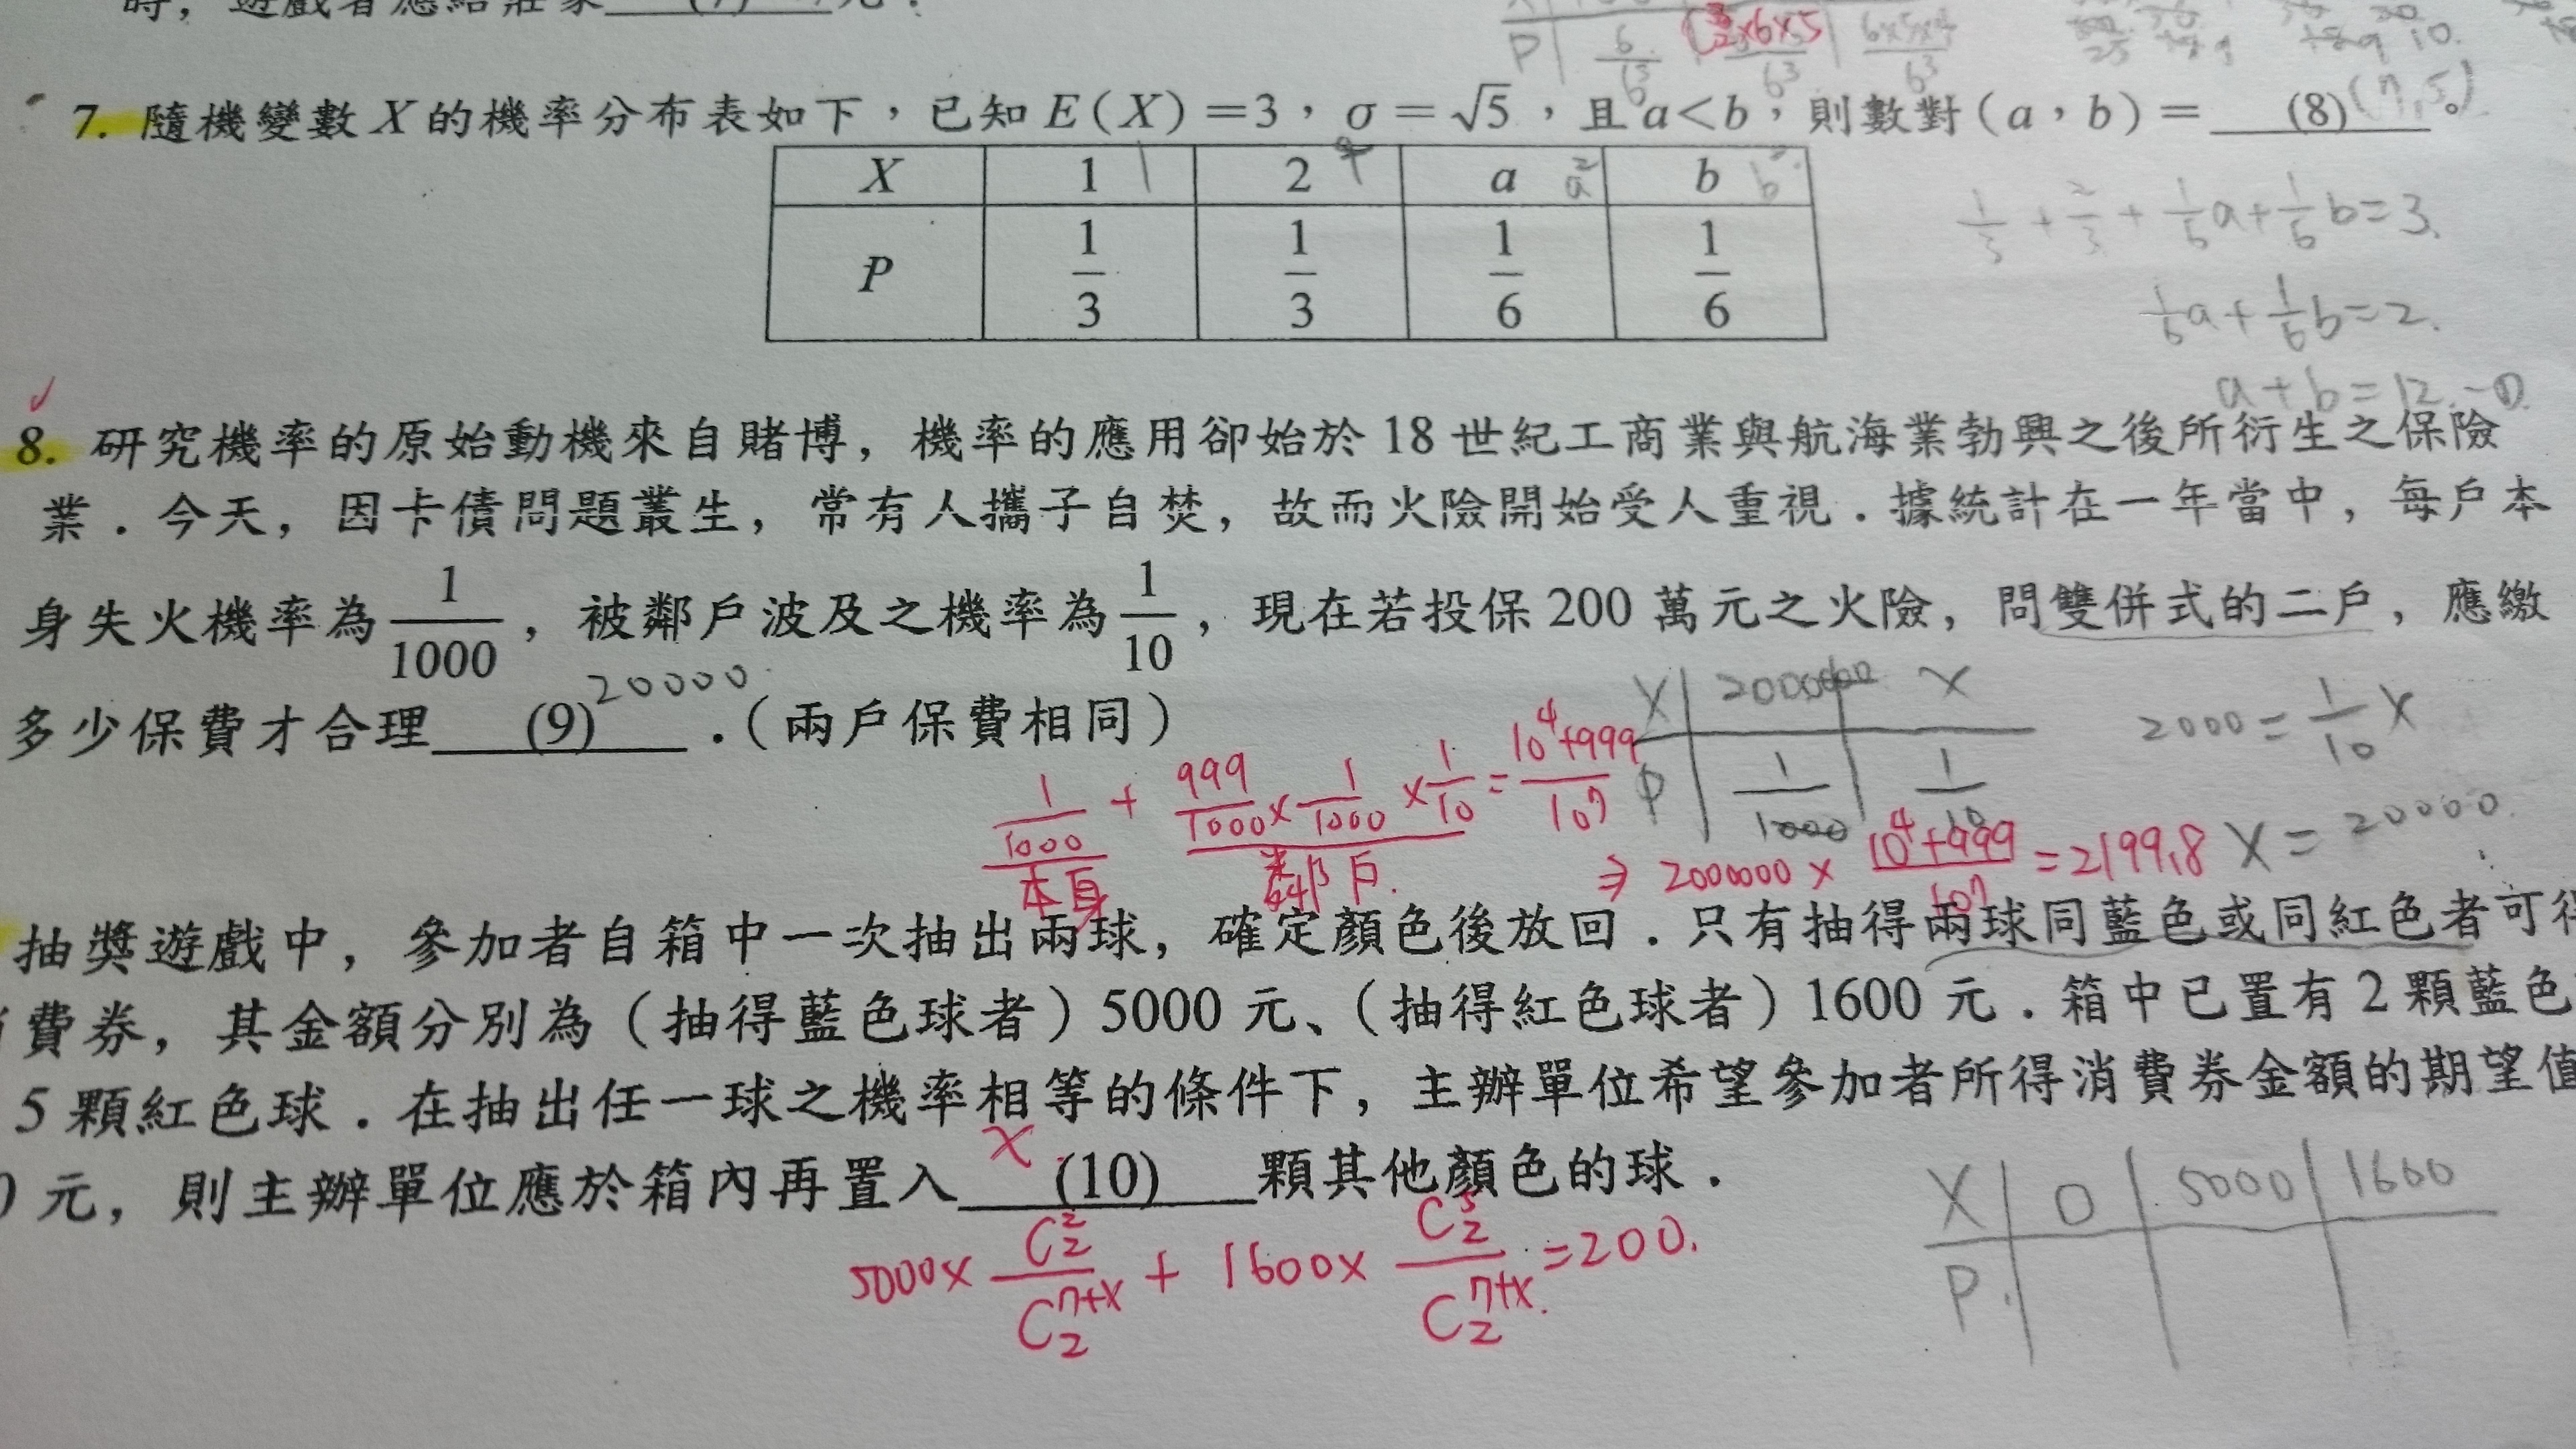 時，遊戲者應給莊家 (7) 元．
P 6/6³ C³₂×6×5/6³ 6×5×4/6³
7. 隨機變數 X 的機率分布表如下，已知 E(X)=3，σ=√5，且 a<b，則數對(a，b)= (8) 。
X 1 2 a b
1 4 a² b²
P 1/3 1/3 1/6 1/6
1/3 + 2/3 + 1/6 a + 1/6 b = 3.
1/6 a + 1/6 b = 2.
a + b = 12 -①
8. 研究機率的原始動機來自賭博，機率的應用卻始於 18 世紀工商業與航海業勃興之後所衍生之保險
業．今天，因卡債問題叢生，常有人攜子自焚，故而火險開始受人重視．據統計在一年當中，每戶本
身失火機率為 1/1000，被鄰戶波及之機率為 1/10，現在若投保 200 萬元之火險，問雙併式的二戶，應繳
多少保費才合理 (9) 20000 ．（兩戶保費相同）
X 2000000 X
P 1/1000 1/10
2000 = 1/10 X
X = 20000.
1/1000 + 999/1000 × 1/1000 × 1/10 = 10⁴+999/10⁷
本身 鄰戶.
⇒ 2000000 × 10⁴+999/10⁷ = 2199.8
抽獎遊戲中，參加者自箱中一次抽出兩球，確定顏色後放回．只有抽得兩球同藍色或同紅色者可得
費券，其金額分別為（抽得藍色球者）5000 元、（抽得紅色球者）1600 元．箱中已置有 2 顆藍色
5 顆紅色球．在抽出任一球之機率相等的條件下，主辦單位希望參加者所得消費券金額的期望值
元，則主辦單位應於箱內再置入 x (10) 顆其他顏色的球．
5000× C²₂/C₂⁷⁺ˣ + 1600× C⁵₂/C₂⁷⁺ˣ = 200.
X 0 5000 1600
P